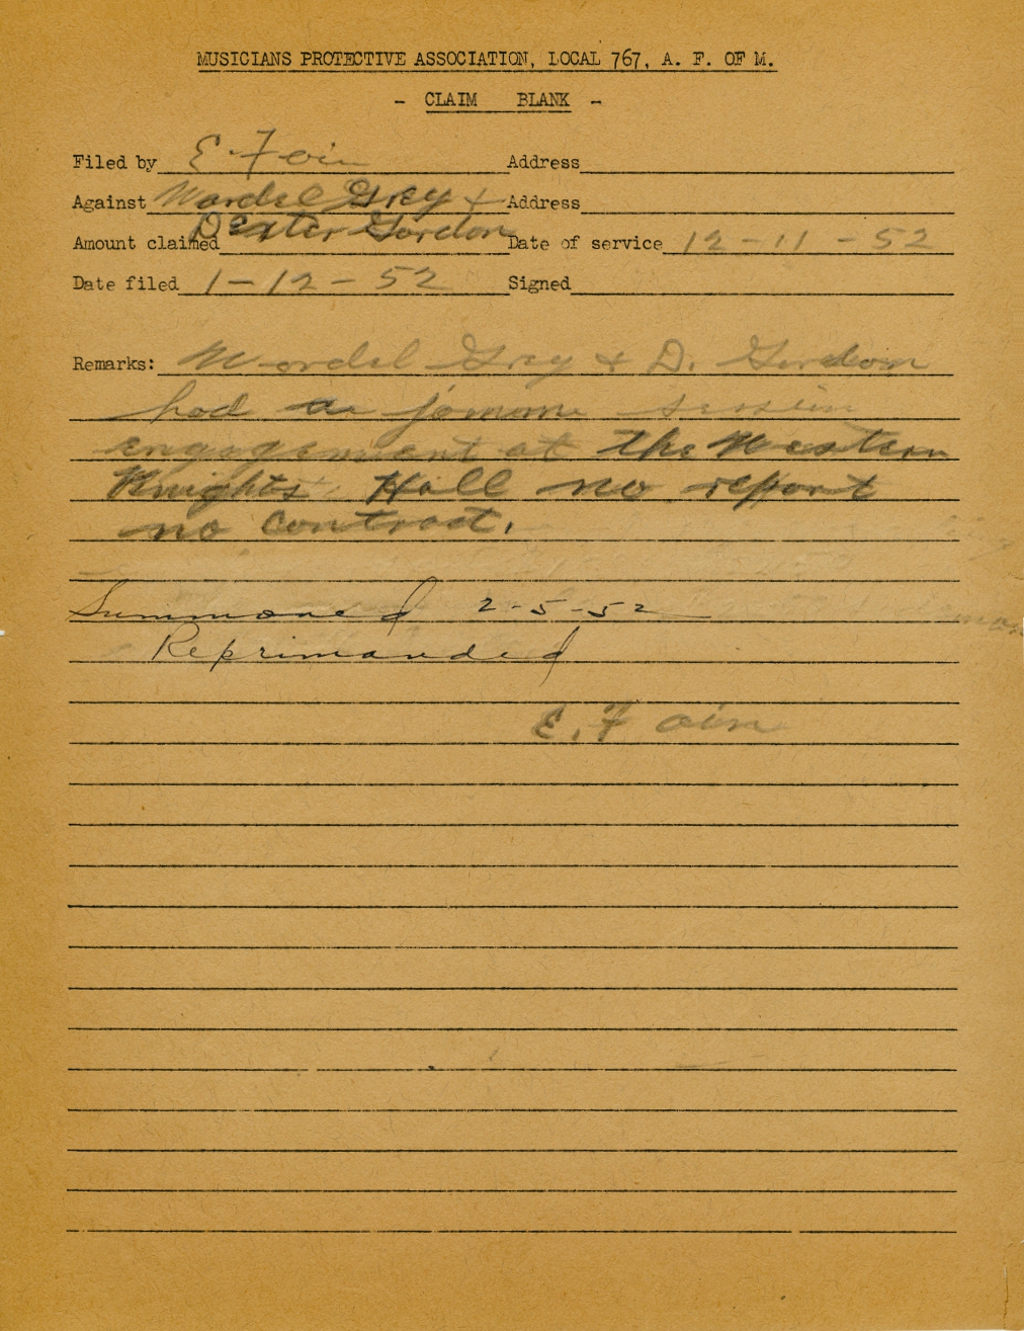 MUSICIANS PROTECTIVE ASSOCIATION, LOCAL 767, A. F. OF M.
- CLAIM BLANK -
Filed by E. Fain Address
Against Wardel Grey + Address
Dexter Gordon
Amount claimed Date of service 12-11-52
Date filed 1-12-52 Signed
Remarks: Wardel Grey + D. Gordon
had a session
engagement at the Western
Knights Hall no report
no contract.
Summoned 2-5-52
Reprimanded
E. Fain